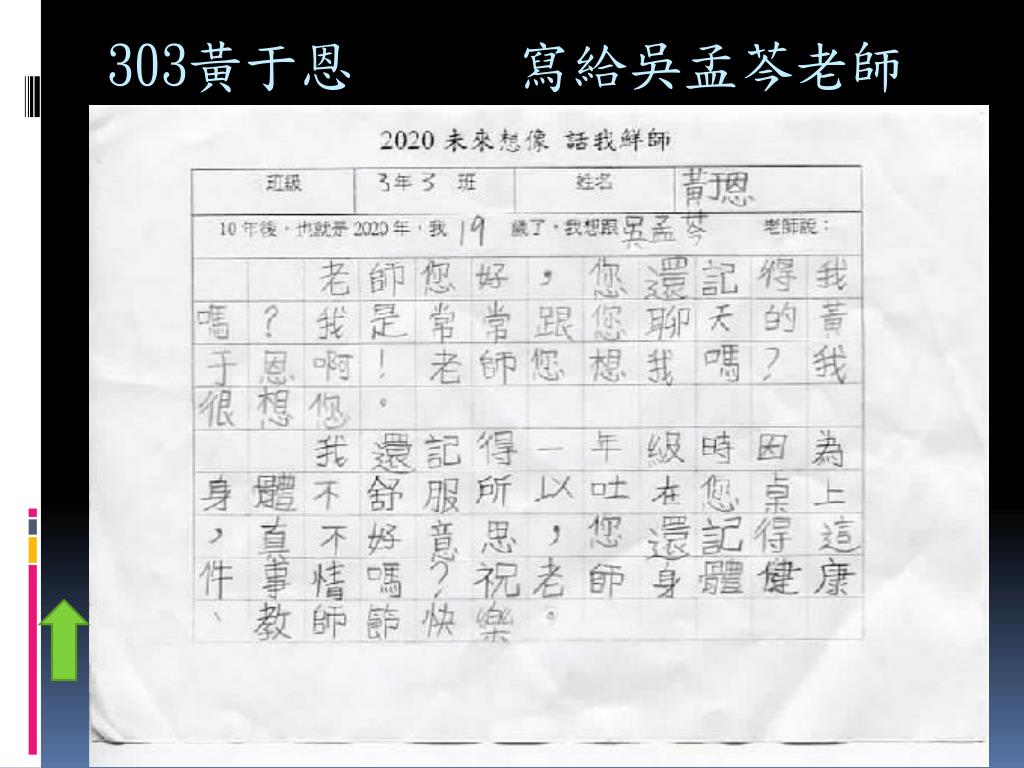 303黃于恩 寫給吳孟芩老師
2020 未來想像 話我鮮師
班級 3年3班 姓名 黃于恩
10年後，也就是2020年，我19歲了，我想跟吳孟芩老師說：
老師您好，您還記得我
嗎？我是常常跟您聊天的黃
于恩啊！老師您想我嗎？我
很想您。
我還記得一年級時因為
身體不舒服所以吐在您桌上
，真不好意思，您還記得這
件事情嗎？祝老師身體健康
、教師節快樂。